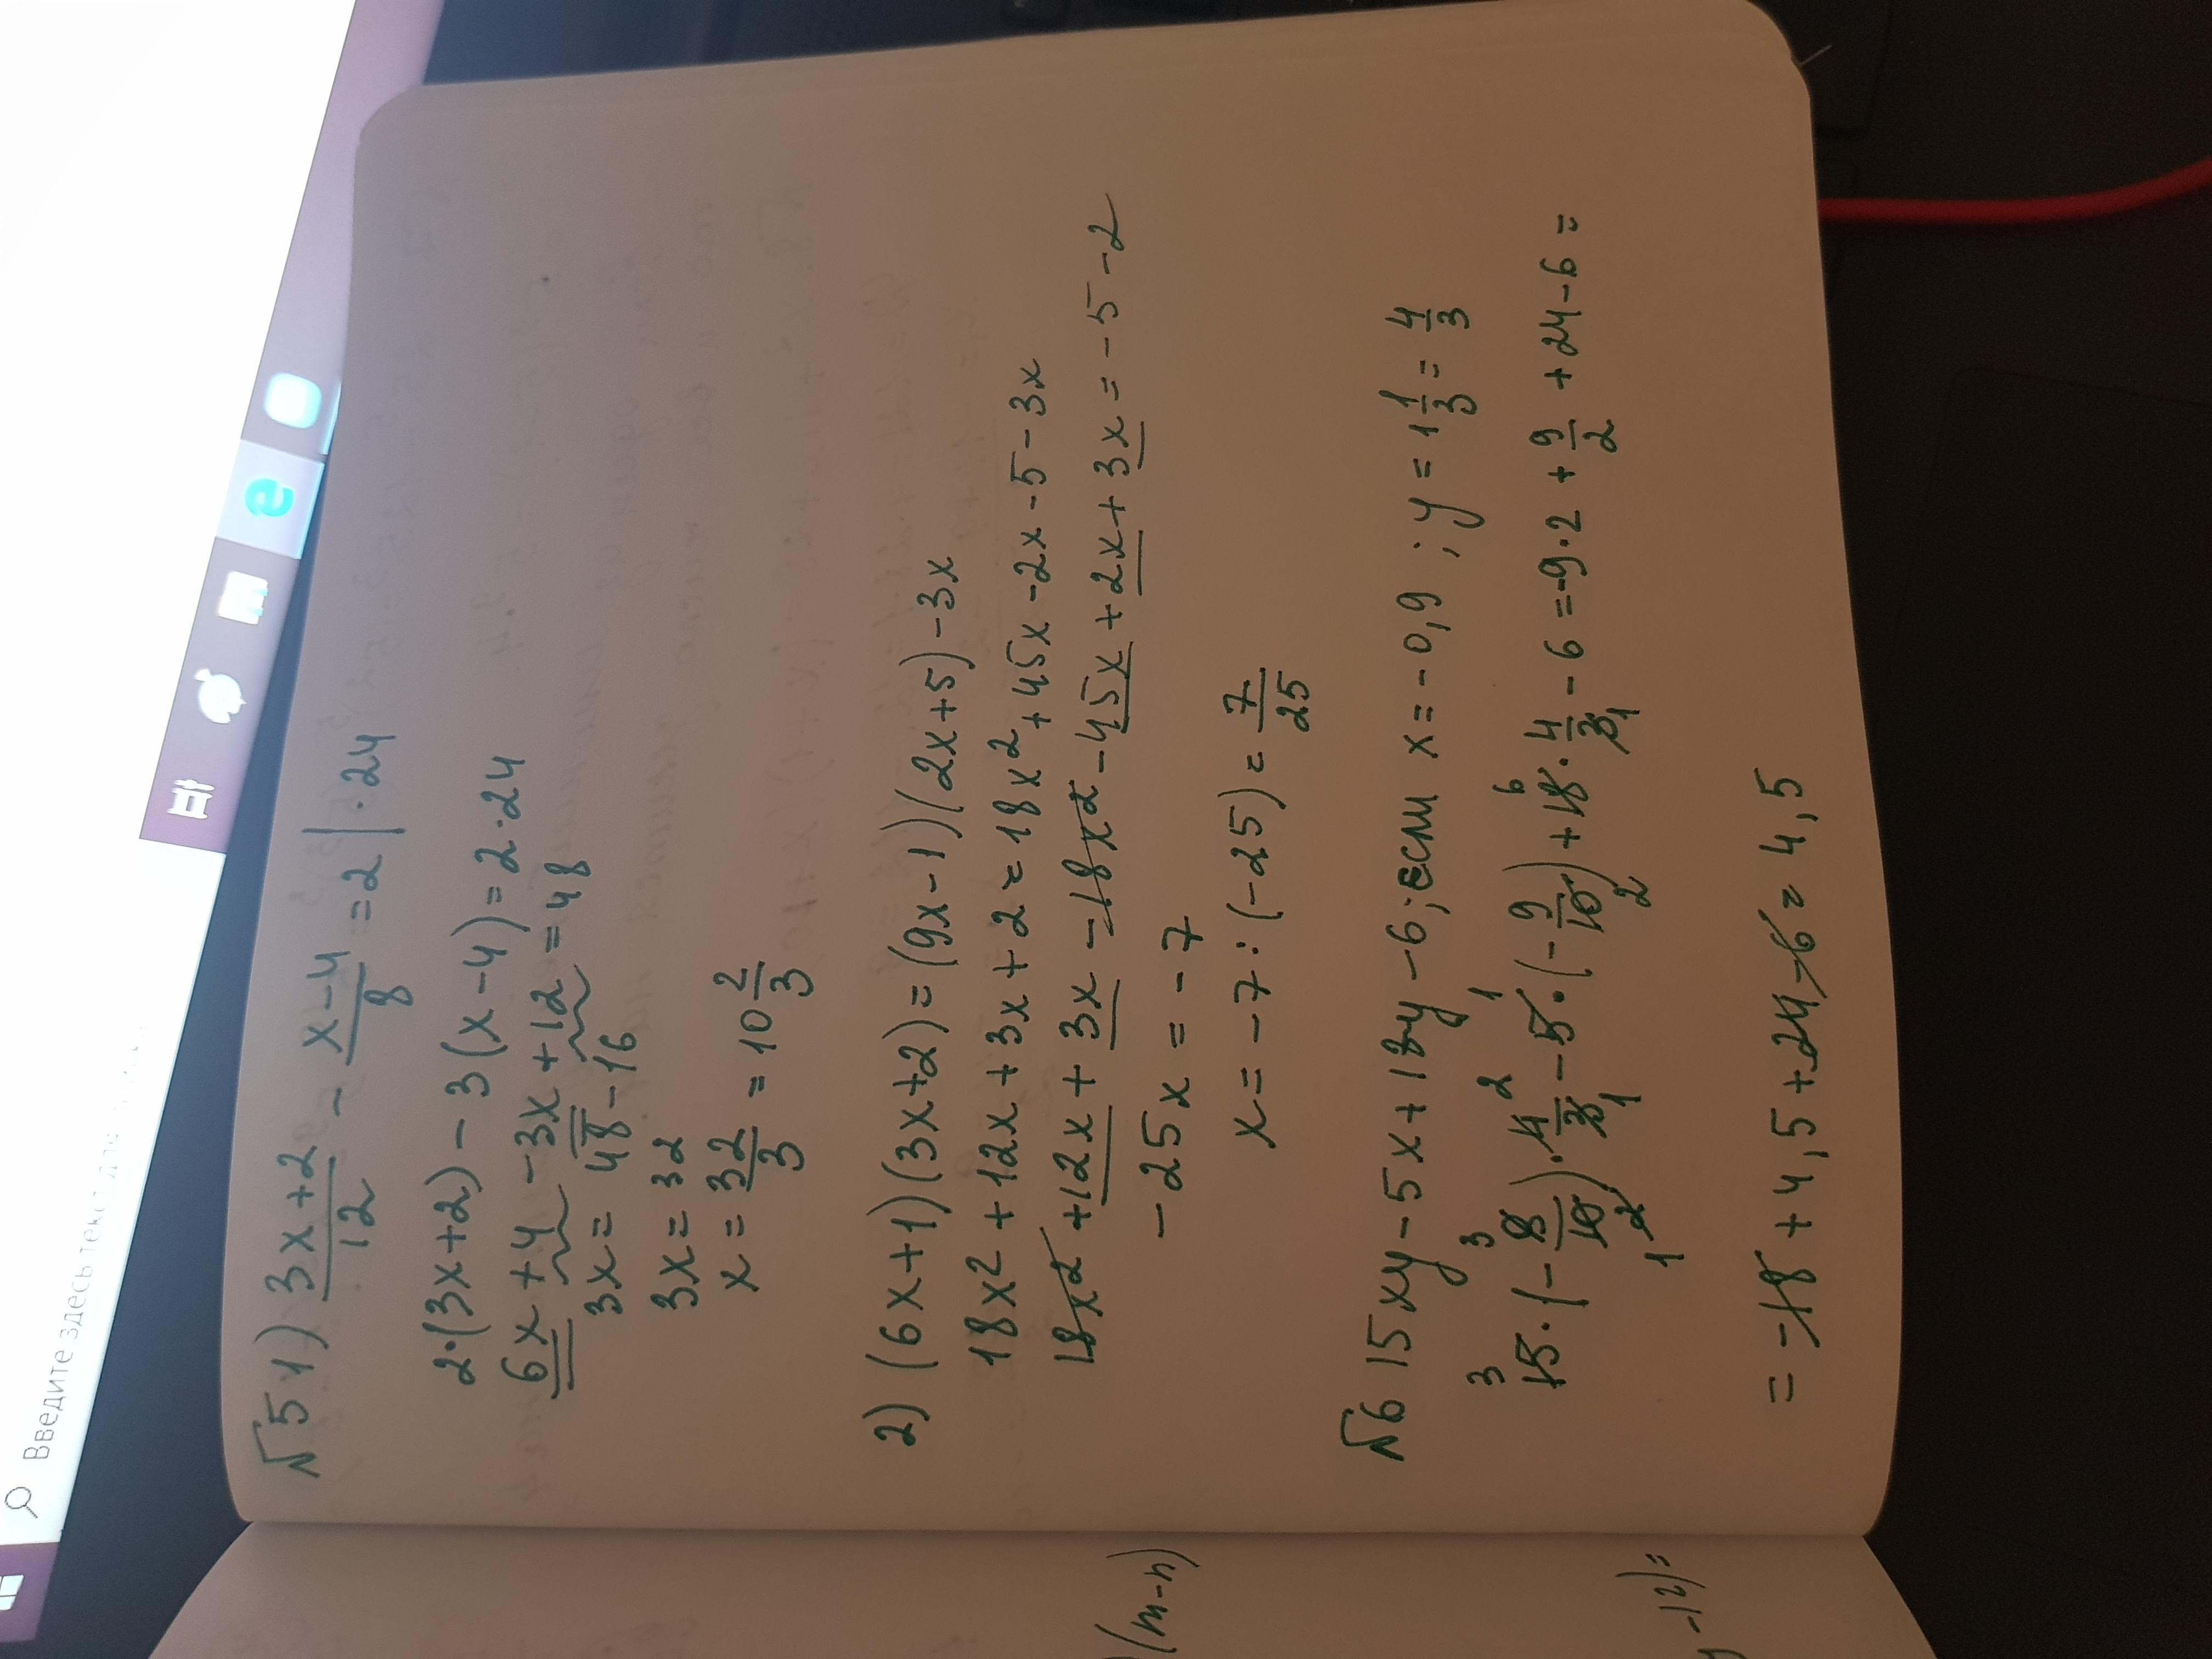 Введите здесь текст для
№5 1) (3x+2)/12 - (x-4)/8 = 2 | · 24
2·(3x+2) - 3(x-4) = 2·24
6x + 4 - 3x + 12 = 48
3x = 48 - 16
3x = 32
x = 32/3 = 10 2/3
2) (6x+1)(3x+2) = (9x-1)(2x+5) - 3x
18x² + 12x + 3x + 2 = 18x² + 45x - 2x - 5 - 3x
18x² + 12x + 3x - 18x² - 45x + 2x + 3x = -5 - 2
-25x = -7
x = -7 : (-25) = 7/25
№6 15xy - 5x + 18y - 6; если x = -0,9 ; y = 1 1/3 = 4/3
15·(-9/10)·4/3 - 5·(-9/10) + 18·4/3 - 6 = -9·2 + 9/2 + 24 - 6 =
= -18 + 4,5 + 24 - 6 = 4,5
(m-n)
-12)=